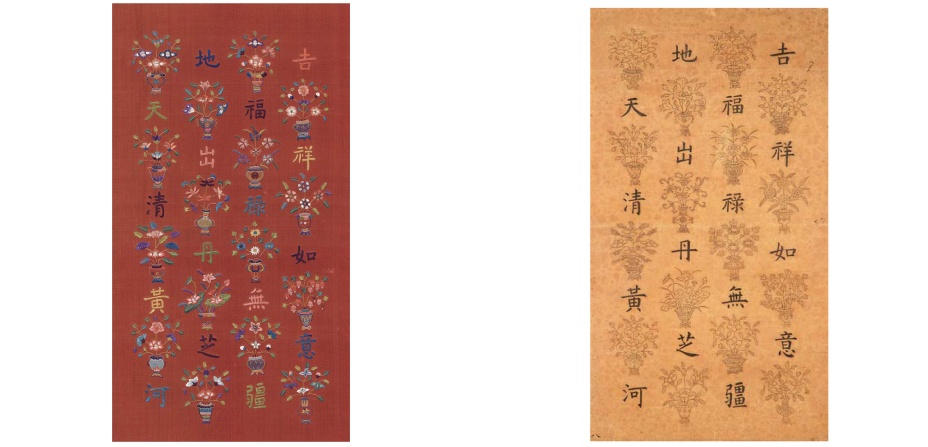 吉祥如意
福祿無疆
地出丹芝
天清黃河
吉祥如意
福祿無疆
地出丹芝
天清黃河
八